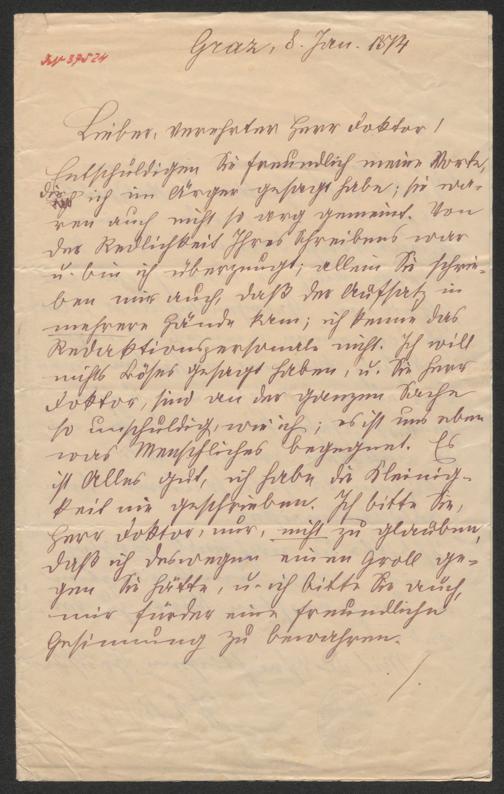 Graz, 8. Jan. 1874
Lieber, verehrter Herr Doktor!
Entschuldigen Sie freundlich meine Worte,
die ich im Ärger gesagt habe; sie wa-
ren auch nicht so arg gemeint. Von
der Redlichkeit Ihres Schreibens war
u. bin ich überzeugt; allein Sie schrie-
ben mir auch, daß der Aufsatz in
mehrere Hände kam; ich kenne das
Redaktionspersonale nicht. Ich will
nichts Böses gesagt haben, u. Sie Herr
Doktor, sind an der ganzen Sache
so unschuldig, wie ich; es ist uns eben
was Menschliches begegnet. Es
ist Alles gut, ich habe die Kleinig-
keit nie geschrieben. Ich bitte Sie,
Herr Doktor, nur, nicht zu glauben,
daß ich deswegen einen Groll ge-
gen Sie hätte, u. ich bitte Sie auch,
mir fürder eine freundliche
Gesinnung zu bewahren.
./.